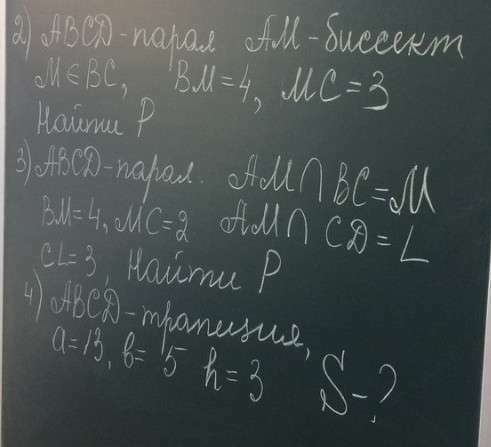 2) ABCD-парал AM-биссект
M∈BC, BM=4, MC=3
Найти P
3) ABCD-парал. AM∩BC=M
BM=4, MC=2 AM∩CD=L
CL=3, Найти P
4) ABCD-трапизия,
a=13, b=5 h=3 S-?